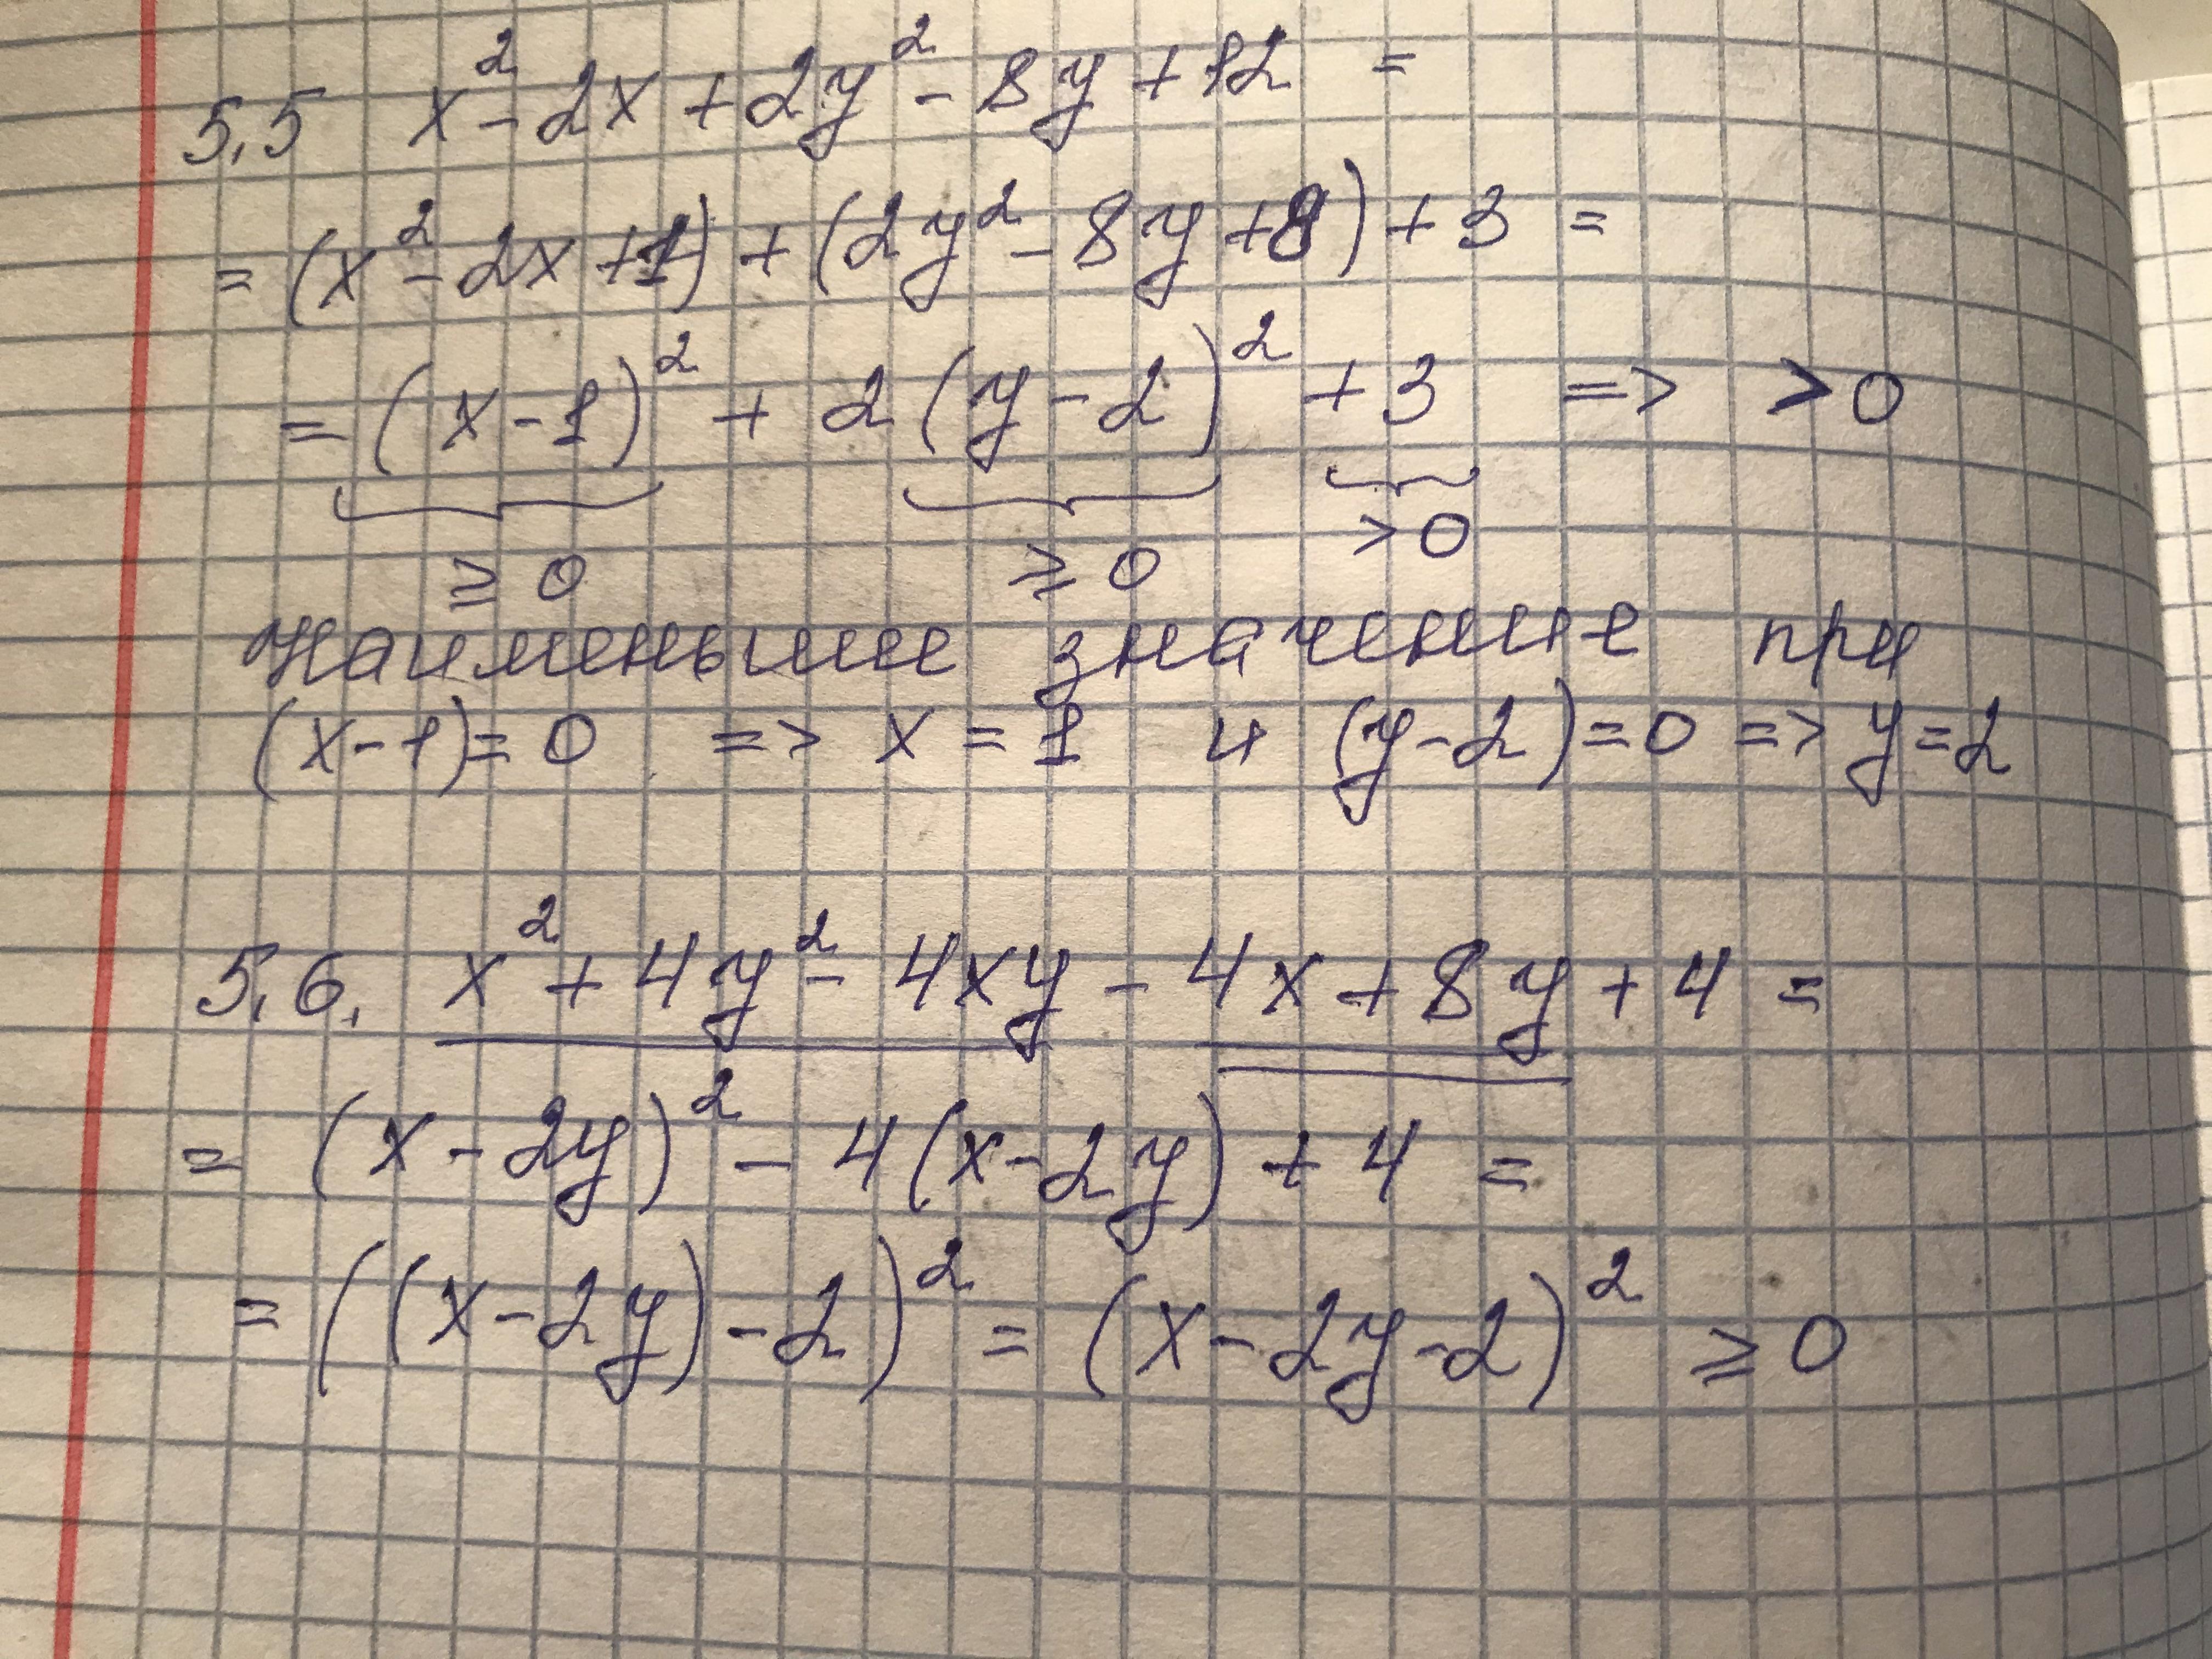 5.5 x² - 2x + 2y² - 8y + 12 =
= (x² - 2x + 1) + (2y² - 8y + 8) + 3 =
= (x - 1)² + 2(y - 2)² + 3 => > 0
≥ 0 ≥ 0 > 0
Наименьшее значение при
(x - 1) = 0 => x = 1 и (y - 2) = 0 => y = 2
5.6. x² + 4y² - 4xy - 4x + 8y + 4 =
= (x - 2y)² - 4(x - 2y) + 4 =
= ((x - 2y) - 2)² = (x - 2y - 2)² ≥ 0